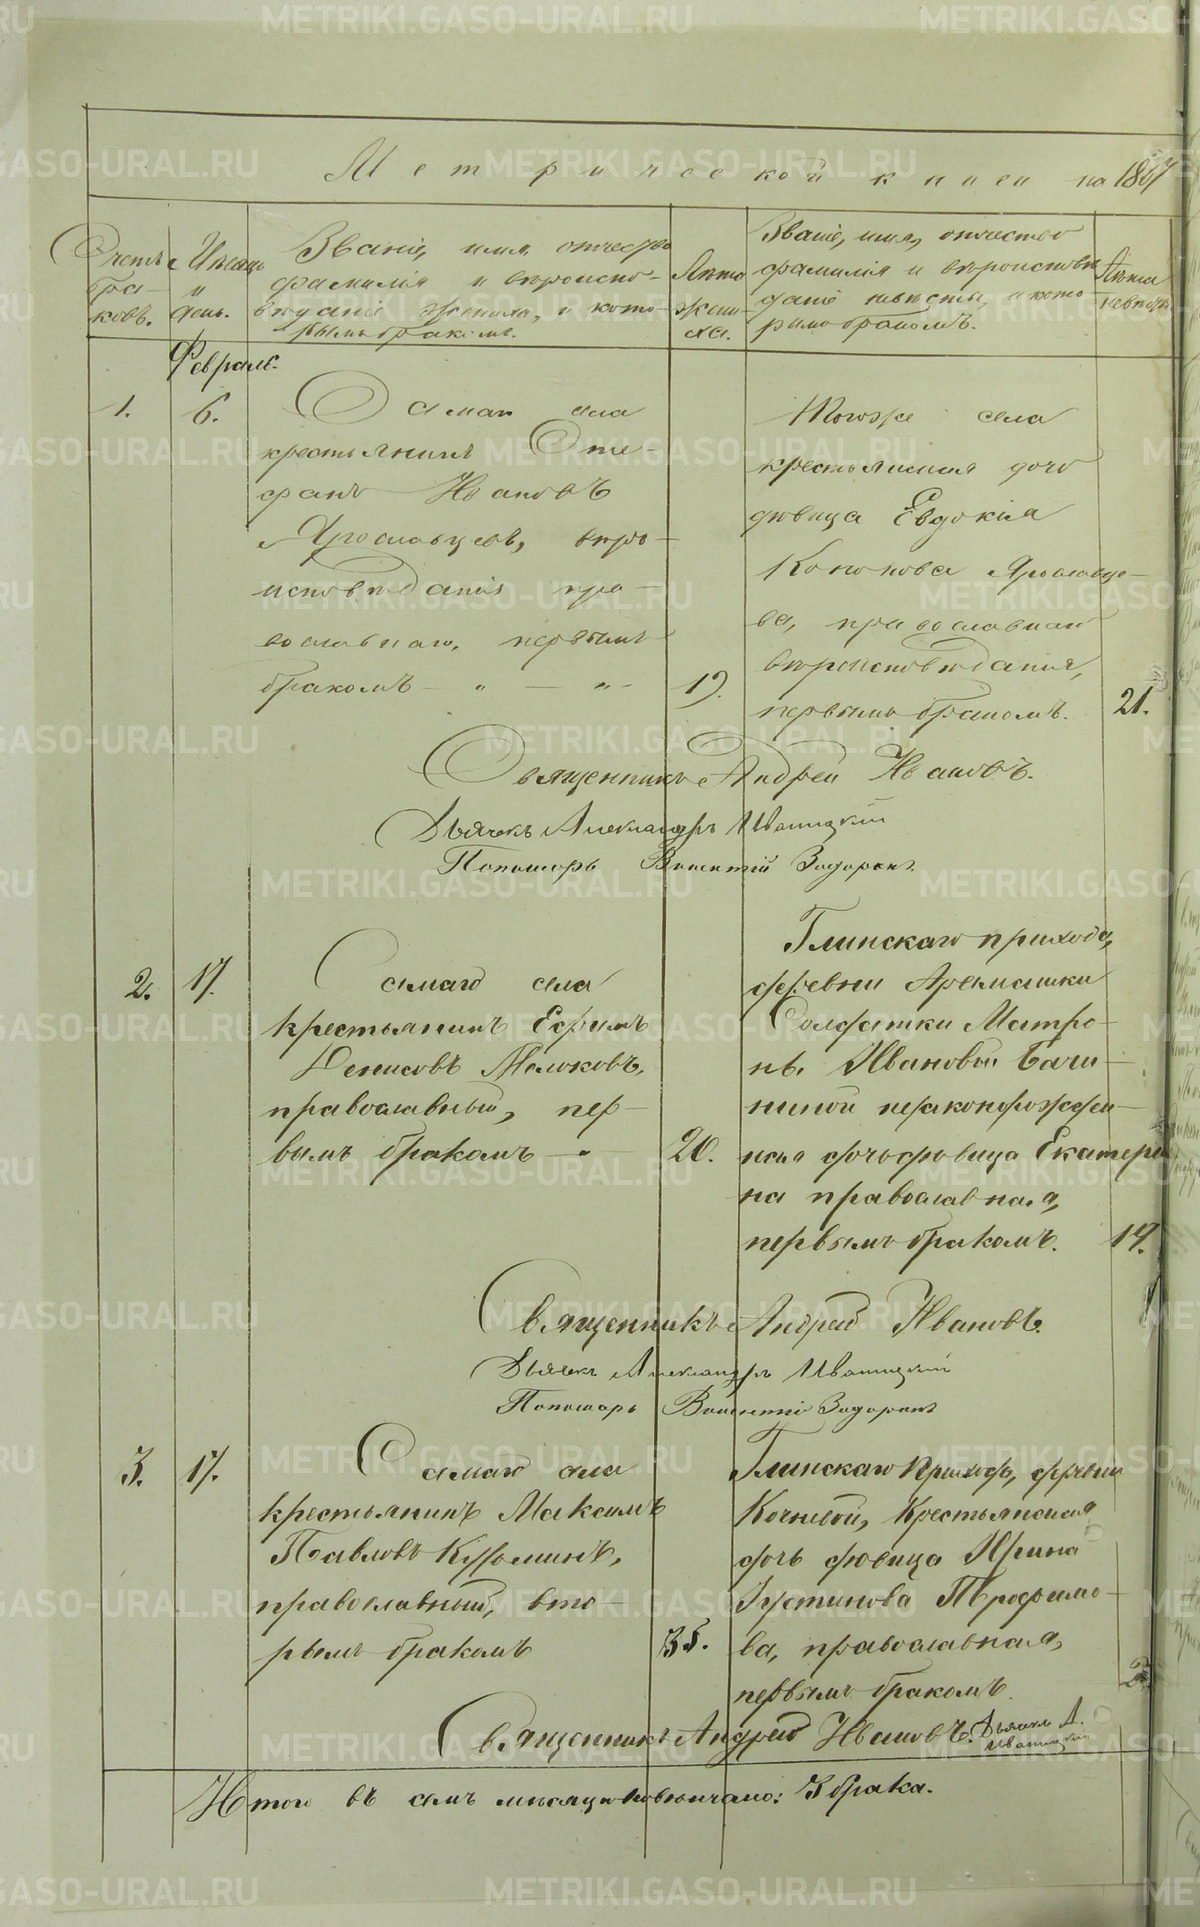 Метрической книги на 1867
Счетъ браковъ.
Мѣсяцъ и день.
Званіе, имя, отчество
фамилія и вѣроиспо-
вѣданіе жениха, и кото-
рымъ бракомъ.
Лѣта
жени-
ха.
Званіе, имя, отчество
фамилія и вѣроисповѣ
даніе невѣсты, и кото-
рымъ бракомъ.
Лѣта
невѣсты
Февраль.
1.
6.
Самаго села
крестьянинъ Сте-
фанъ Ивановъ
Ярославцевъ, вѣро-
исповѣданія пра-
вославнаго, первымъ
бракомъ — „ — „ -
19.
Тогоже села
крестьянина дочь
дѣвица Евдокія
Кононова Ярославцо-
ва, православнаго
вѣроисповѣданія,
первымъ бракомъ.
21.
Священникъ Андрей Ивановъ.
Дьячекъ Александръ Ивановскій
Пономарь Викентій Задоринъ
2.
17.
Самаго села
крестьянинъ Ефимъ
Денисовъ Молоковъ,
православный, пер-
вымъ бракомъ — „
20.
Глинскаго прихода,
деревни Арамашки
Солдатки Матро-
ны Ивановой Бачи-
ниной незаконорожден-
ная дочь дѣвица Екатери
на православная,
первымъ бракомъ.
19.
Священникъ Андрей Ивановъ.
Дьячекъ Александръ Ивановскій
Пономарь Викентій Задоринъ
3.
17.
Самаго села
крестьянинъ Максимъ
Павловъ Кузьминъ,
православный, вто-
рымъ бракомъ
35.
Глинскаго прихода, деревни
Кочневой, крестьянская
дочь дѣвица Ирина
Іустинова Трофимо-
ва, православная,
первымъ бракомъ.
Священникъ Андрей Ивановъ. Дьячекъ А.
Ивановскій
Итого въ семъ мѣсяцѣ повѣнчано: 3 брака.
METRIKI.GASO-URAL.RU